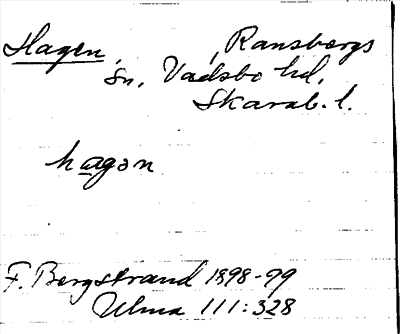 Hagen, , Ransbergs
sn, Vadsbo hd,
Skarab. l.
hagən
F. Bergstrand 1898-99
Ulma 111:328